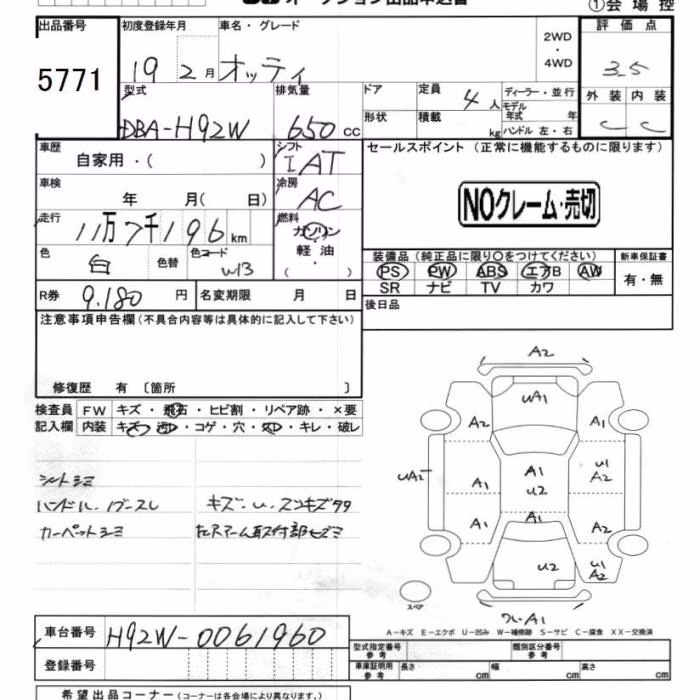 オークション出品申込書
①会場控
出品番号
5771
初度登録年月
19 2月
車名・グレード
オッティ
2WD
・
4WD
評価点
3.5
外装 内装
C C
型式
DBA-H92W
排気量
650cc
ドア
定員
4人
形状
積載
kg
ディーラー・並行
モデル
年式 年
ハンドル 左・右
車歴
自家用・( )
シフト
IAT
冷房
AC
車検
年 月( 日)
走行
11万7千196km
燃料
ガソリン
軽油
・( )
色
白
色替
色コード
W13
R券
9.180円
名変期限 月 日
セールスポイント(正常に機能するものに限ります)
NOクレーム・売切
装備品(純正品に限り○をつけてください)
PS PW ABS エアB AW
SR ナビ TV カワ
新車保証書
有・無
後日品
注意事項申告欄(不具合内容等は具体的に記入して下さい)
修復歴 有〔箇所 〕
検査員
記入欄
FW キズ・飛石・ヒビ割・リペア跡・×要
内装 キズ・汚・コゲ・穴・・キレ・破レ
シートシミ
ハンドル・ノブスレ
カーペットシミ
キズ・U・スンキズタタ
A2
UA1
A2
A1
UA2
A1
A1
U2
U1
A2
A1
A1
A2
U2
U1
A2
スペア
ワレ・A1
A-キズ E-エクボ U-凹み W-補修跡 S-サビ C-腐食 XX-交換済
車台番号
H92W-0061960
登録番号
型式指定番号
参考
類別区分番号
参考
車庫証明用
参考
長さ cm
幅 cm
高さ cm
希望出品コーナー(コーナーは各会場により異なります。)